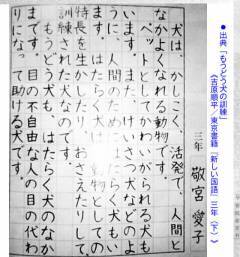 ●出典「もうどう犬の訓練」
(吉原順平／東京書籍「新しい国語」三年〈下〉)
三年　敬宮　愛子
犬は、かしこく、活発で、人間と
なかよくなれる動物です。
ペットとしてかわいがられる犬も
います。また、けいさつ犬などのよ
うに、人間のためにはたらく犬もい
ます。はたらく犬は、動物としての
特長を生かしたり、おさえたりして、
訓練された犬なのです。
もうどう犬も、はたらく犬のなか
まです。目の不自由な人の目の代わ
りになって助ける犬です。